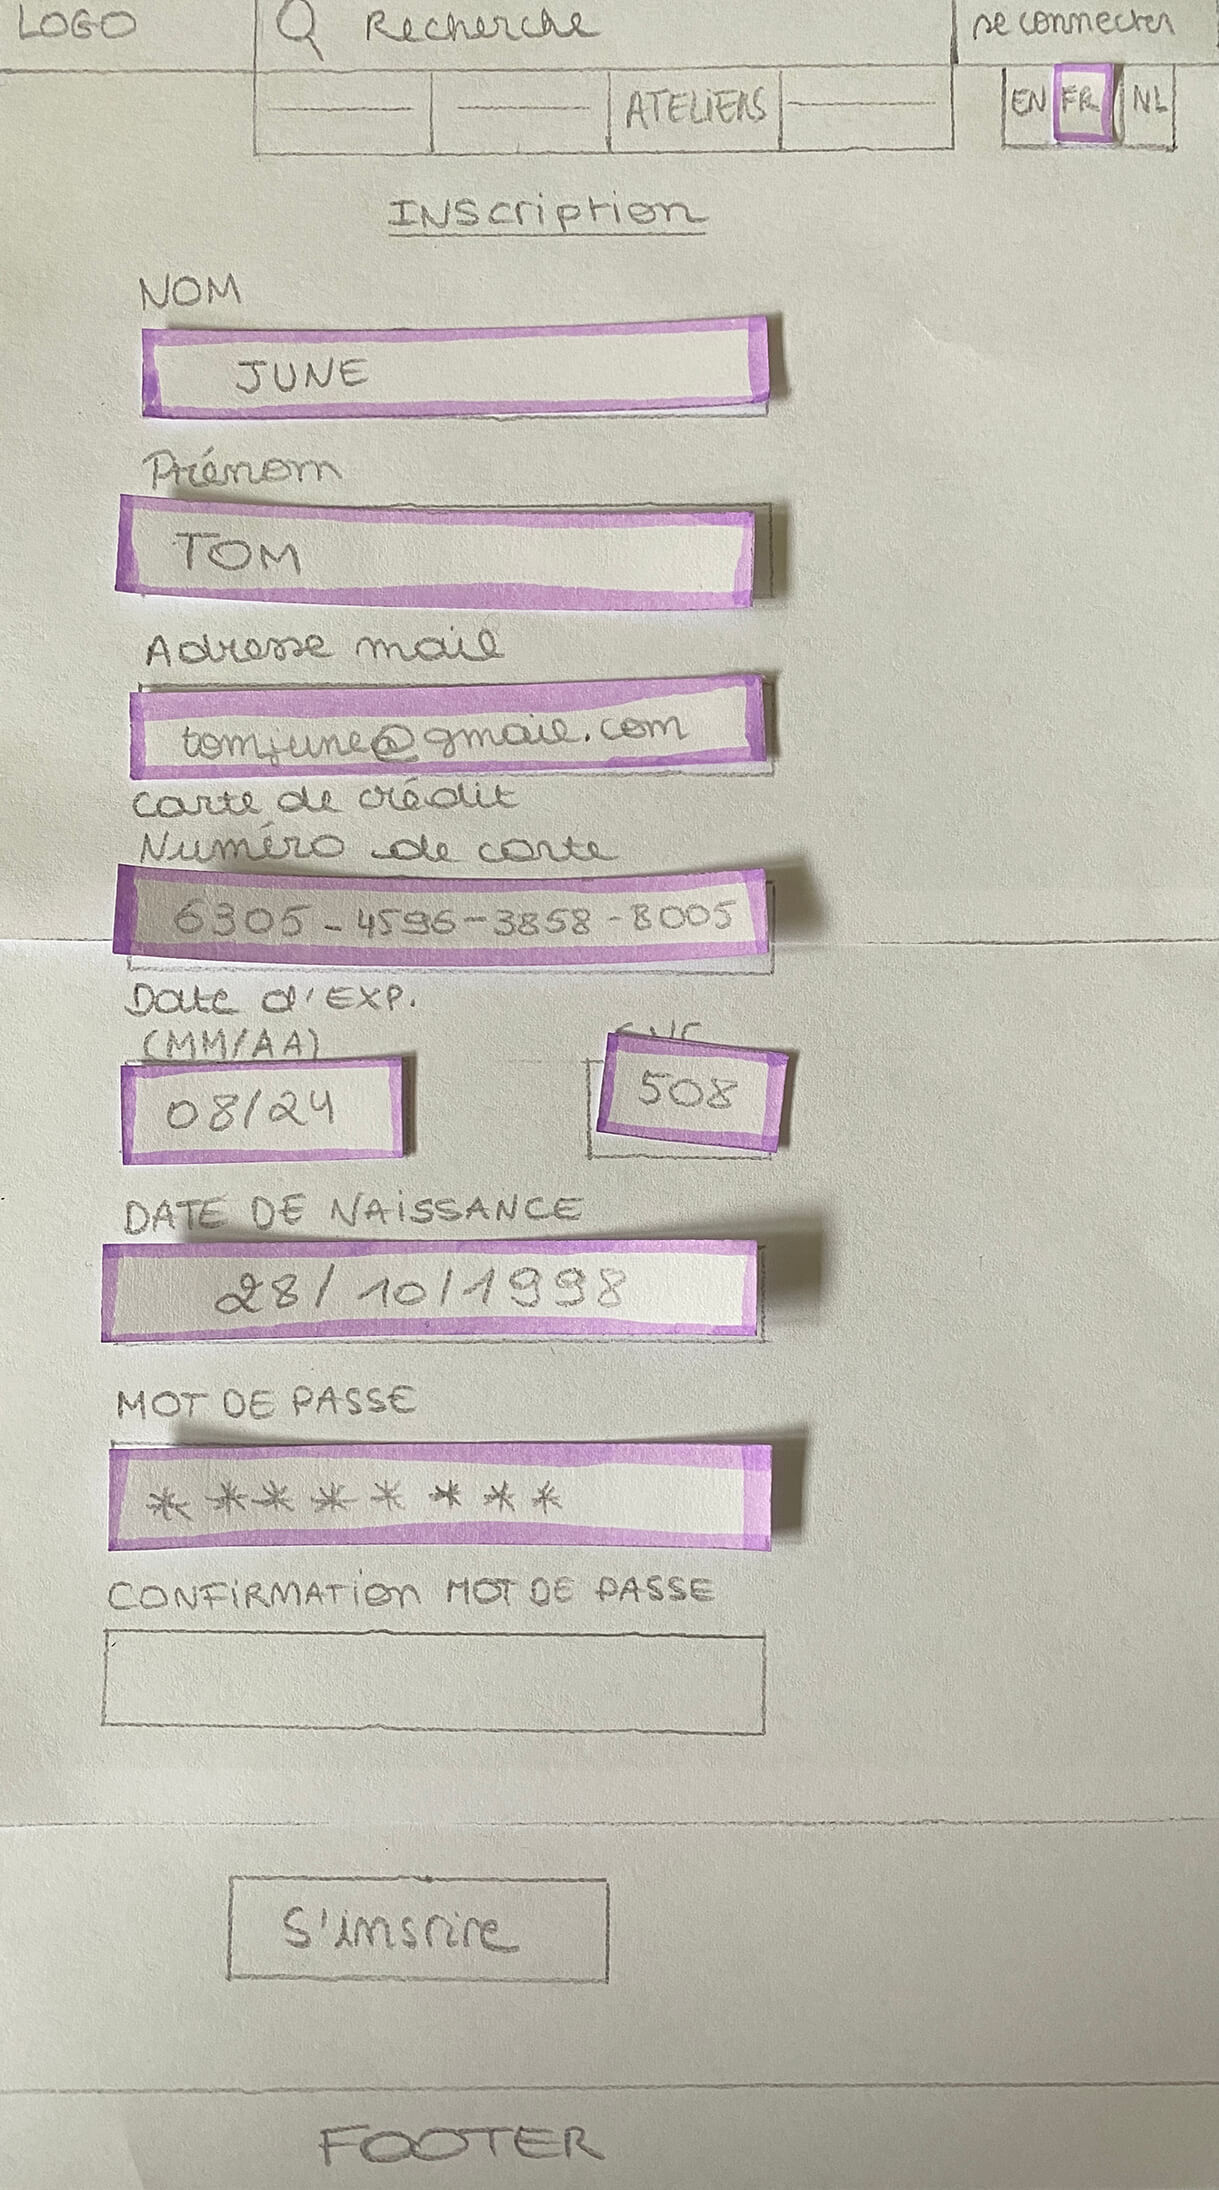 LOGO
Recherche
se connecter
ATELIERS
EN FR NL
INScription
NOM
JUNE
Prénom
TOM
Adresse mail
tomjune@gmail.com
Carte de crédit
Numéro de carte
6305-4596-3858-8005
Date d'EXP.
(MM/AA)
CVC
08/24
508
DATE DE NAiSSANCE
28/10/1998
MOT DE PASSE
********
CONFiRMATion MOT DE PASSE
S'inscrire
FOOTER